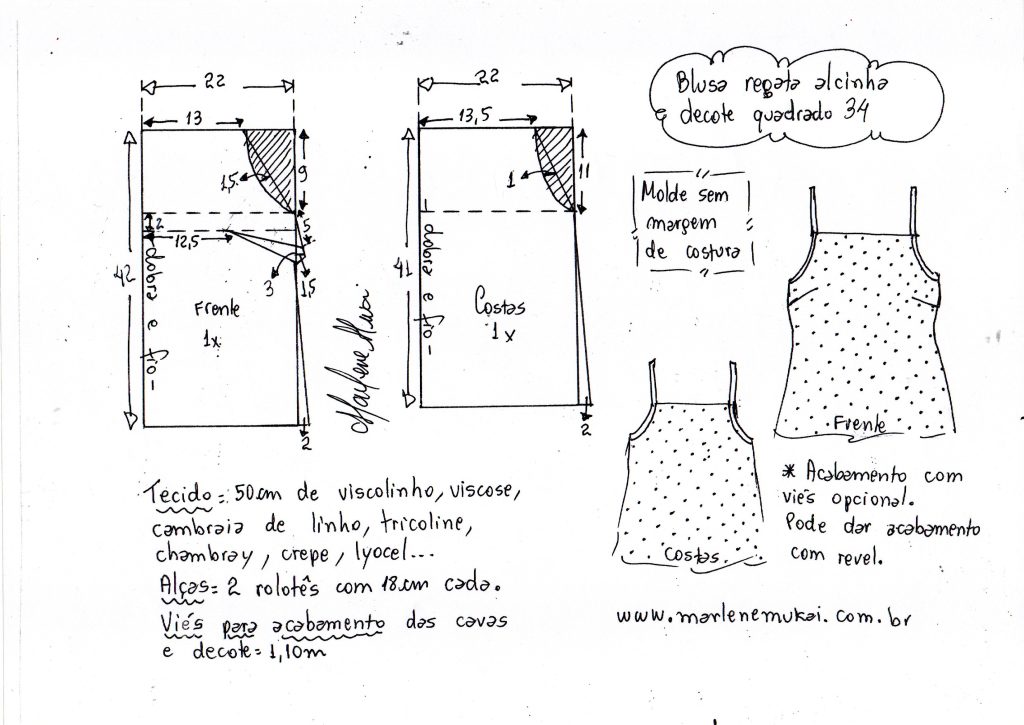 Blusa regata alcinha
e decote quadrado 34
22
13
9
1,5
5
2
12,5
3
1,5
42
dobra e fio
Frente
1x
2
Marlene Mukai
22
13,5
11
1
41
dobra e fio
Costas
1x
2
Molde sem
margem
de costura
Frente
Costas
* Acabamento com
viés opcional.
Pode dar acabamento
com revel.
Tecido = 50cm de viscolinho, viscose,
cambraia de linho, tricoline,
chambray, crepe, lyocel...
Alças = 2 rolotês com 18cm cada.
Viés para acabamento das cavas
e decote = 1,10m
www.marlenemukai.com.br